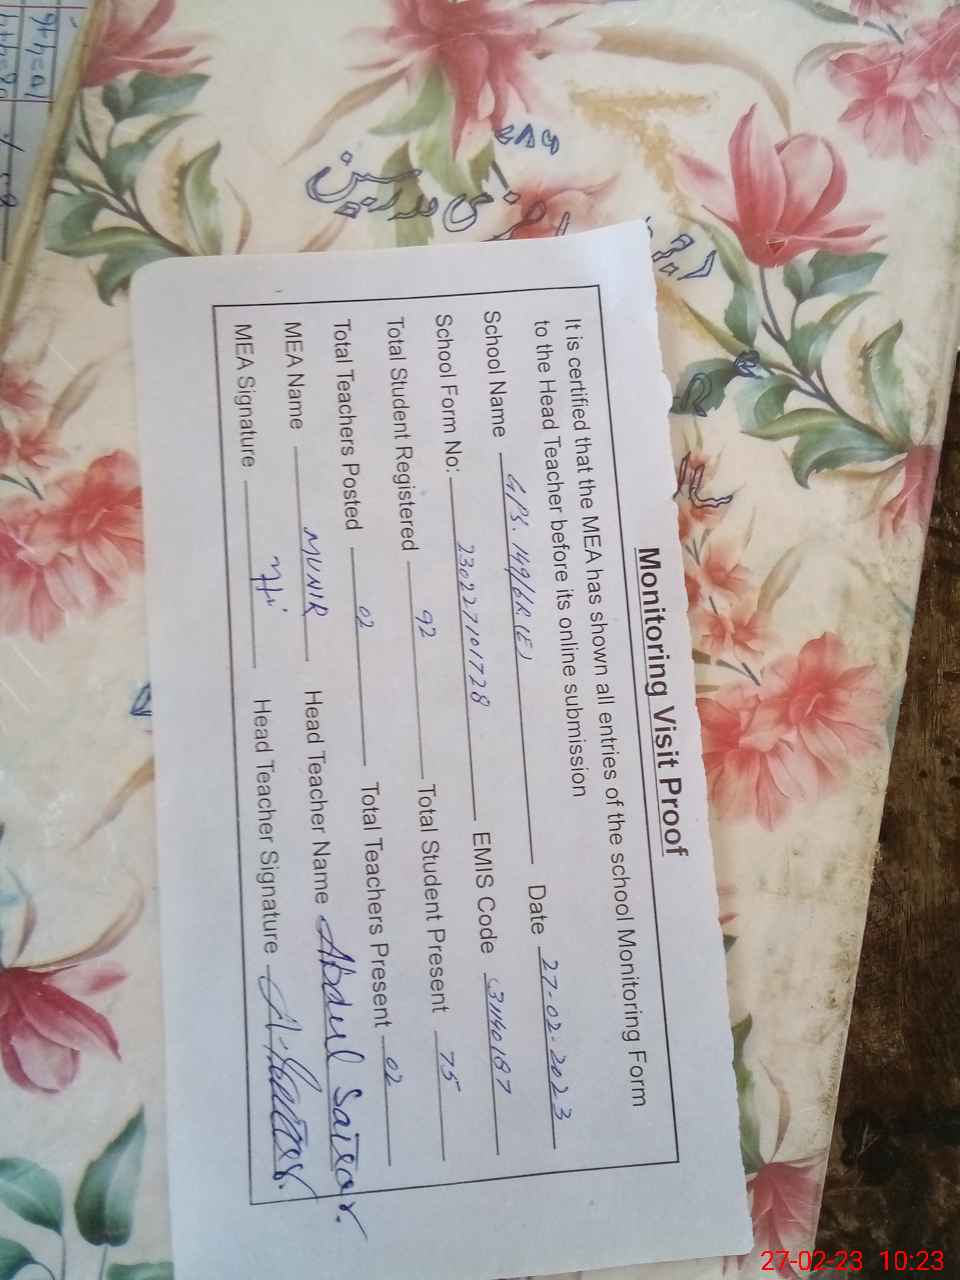 Monitoring Visit Proof
It is certified that the MEA has shown all entries of the school Monitoring Form
to the Head Teacher before its online submission
School Name GPS. 149/6R (E) Date 27-02-2023
School Form No: 230227101728 EMIS Code 31140187
Total Student Registered 92 Total Student Present 75
Total Teachers Posted 02 Total Teachers Present 02
MEA Name MUNIR Head Teacher Name Abdul Sattar.
MEA Signature Head Teacher Signature A. Sattar.
27-02-23 10:23